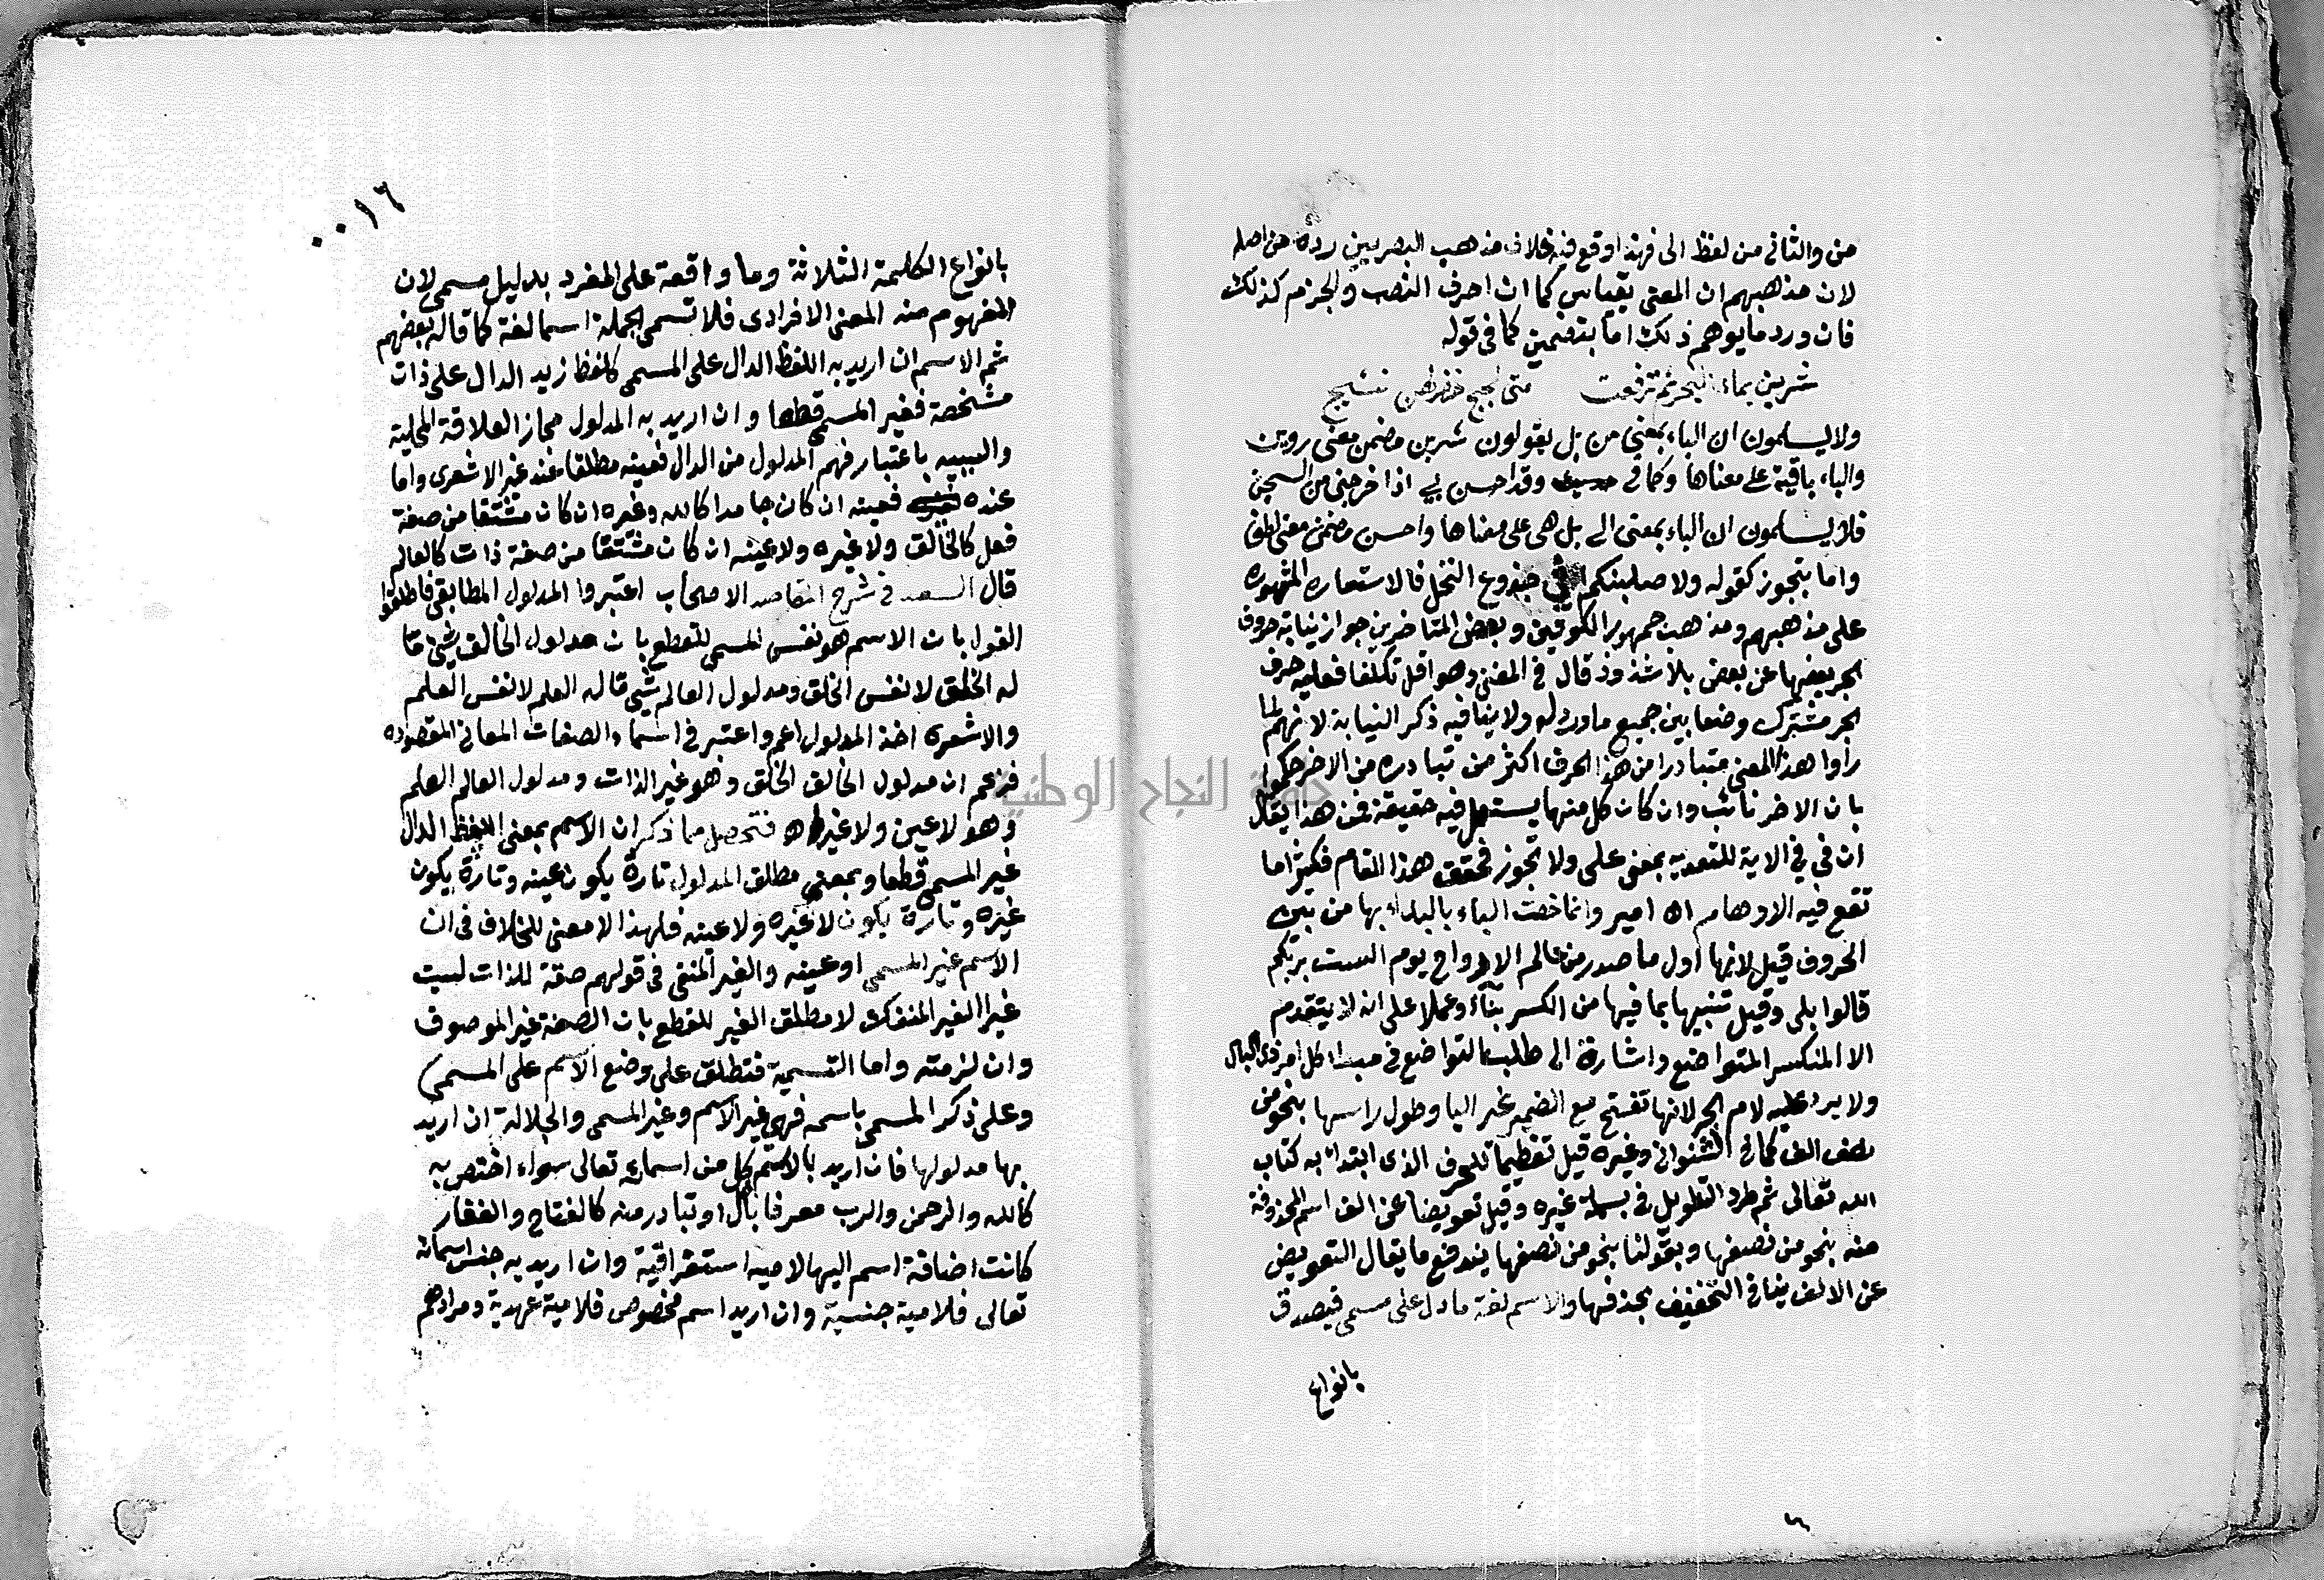 من والثاني من لفظ الى فهذا وقع فيه خلاف مذهب البصريين رده من اصله
لان مذهبهم ان المعنى بقياس كما ان احرف النصب والجزم كذلك
فان ورد ما يوهم ذلك اما بتضمين كما في قوله
شربن بماء البحر ثم ترفعت متى لجج خضر لهن نشيج
ولا يسلمون ان الباء بمعنى من بل يقولون شربن مضمن معنى روين
والباء باقية على معناها وكما في وقد احسن بي اذا خرجني من السجن
فلا يسلمون ان الباء بمعنى الى بل هي على معناها واحسن مضمن معنى لطف
واما بتجوز كقوله ولاصلبنكم في جذوع النخل فالاستعاره المشهوره
على مذهبهم ومذهب جمهور الكوفيين وبعض المتاخرين جواز نيابة حروف
الجر بعضها عن بعض بلا شذوذ قال في المغني وهو اقل تكلفا فعليه حرف
الجر مشترك وضعا بين جميع ما ورد له ولا ينافيه ذكر النيابة لانهم لما
راوا هذا المعنى متبادرا من هذا الحرف اكثر من تبادره من الاخر حكموا
بان الاخر نائب وان كان كل منها يستعمل فيه حقيقة فمن هذا يقال
ان في في الاية للتعدية بمعنى على ولا تجوز فحقق هذا المقام فكثيرا ما
تقع فيه الاوهام اه امير وانما خصت الباء بالبداء بها من بين
الحروف قيل لانها اول ما صدر من عالم الارواح يوم الست بربكم
قالوا بلى وقيل تنبيها بما فيها من الكسر بناء وعملا على انه لا يتقدم
الا المنكسر المتواضع واشارة الى طلب التواضع في مبداء كل امر ذي البال
ولا يرد عليه لام الجر لانها تفتح مع الضمير غير اليا وطول راسها بنحو من
نصف الف كما في الشنواني وغيره قيل تفظيما للحرف الذى ابتداء به كتاب
الله تعالى ثم طرد التطويل في بسملة غيره وقيل تعويضا عن الف اسم المحذوفة
منه بنحو من نصفها وبقولنا بنحو من نصفها يندفع ما يقال التعويض
عن الالف ينافي التخفيف بحذفها والاسم لغة ما دل على مسمى فيصدق
بانواع
٠٠١٦
بانواع الكلمة الثلاثة وما واقعة على المفرد بدليل مسمى لان
المفهوم منه المعنى الافرادى فلا تسمى الجملة اسما لغة كما قاله بعضهم
ثم الاسم ان اريد به اللفظ الدال على المسمى كلفظ زيد الدال على ذات
مشخصة فغير المسمى قطعا وان اريد به المدلول مجاز العلاقة المحلية
والسببيه باعتبار فهم المدلول من الدال فعينه مطلقا عند غير الاشعرى واما
عنده فعينه ان كان جامدا كالله وغيره ان كان مشتقا من صفة
فعل كالخالق ولا غيره ولا عينه ان كان مشتقا من صفة ذات كالعالم
قال السعد في شرح المقاصد الاصحاب اعتبروا المدلول المطابقي فاطلقوا
القول بان الاسم هو نفس المسمى للقطع بان مدلول الخالق شئ ما
له الخلق لا نفس الخلق ومدلول العالم شئ ما له العلم لا نفس العلم
والاشعري اخذ المدلول اعم واعتبر في اسماء الصفات المعاني المقصوده
فزعم ان مدلول الخالق الخلق وهو غير الذات ومدلول العالم العلم
وهو لا عين ولا غير اه فتحصل مما ذكر ان الاسم بمعنى اللفظ الدال
غير المسمى قطعا وبمعنى مطلق المدلول تارة يكون عينه وتارة يكون
غيره وتارة يكون لا غيره ولا عينه فلهذا لا معنى للخلاف في ان
الاسم غير المسمى او عينه والغير المنفي في قولهم صفة للذات ليست
غيرا الغير المنفك لا مطلق الغير للقطع بان الصفة غير الموصوف
وان لزمته واما التسمية فتطلق على وضع الاسم على المسمى
وعلى ذكر المسمى باسمه فهي غير الاسم وغير المسمى والجلالة ان اريد
بها مدلولها فان اريد بالاسم كل من اسمائه تعالى سواء اختص به
كالله والرحمن والرب معرفا بال او تبادر منه كالفتاح والغفار
كانت اضافة اسم اليها لاميه استغراقية وان اريد به جنس اسمائه
تعالى فلامية جنسية وان اريد اسم مخصوص فلامية عهدية ومرادهم